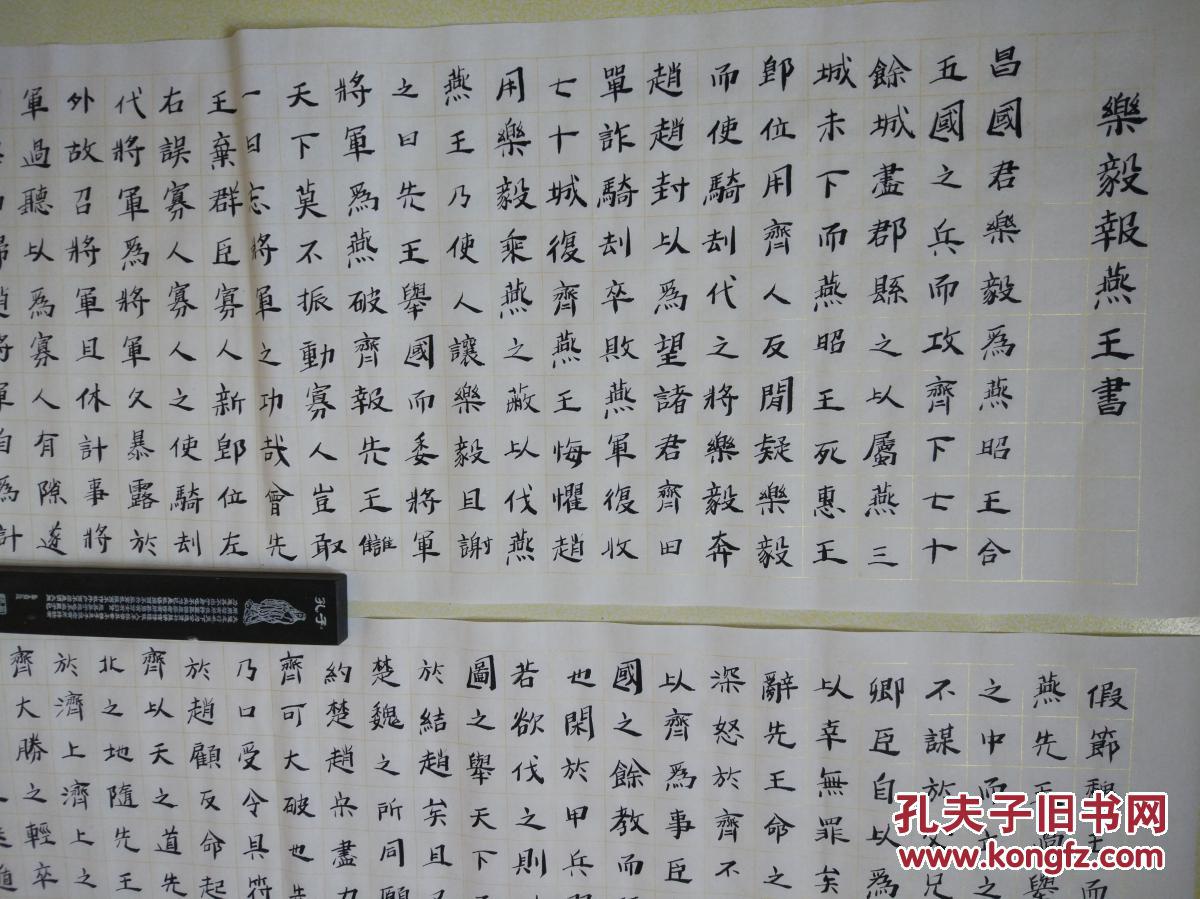 樂毅報燕王書
昌國君樂毅爲燕昭王合
五國之兵而攻齊下七十
餘城盡郡縣之以屬燕三
城未下而燕昭王死惠王
即位用齊人反閒疑樂毅
而使騎刦代之將樂毅奔
趙趙封以爲望諸君齊田
單詐騎刦卒敗燕軍復收
七十城復齊燕王悔懼趙
用樂毅乘燕之敝以伐燕
燕王乃使人讓樂毅且謝
之曰先王舉國而委將軍
將軍爲燕破齊報先王讎
天下莫不振動寡人豈敢
一日忘將軍之功哉會先
王棄群臣寡人新即位左
右誤寡人寡人之使騎刦
代將軍爲將軍久暴露於
外故召將軍且休計事將
軍過聽以爲寡人有隙遂
歸趙將軍自爲計
孔子
假節
燕先王過舉
之中而立之
不謀於父兄
卿臣自以爲
以幸無罪矣
辭先王命之
深怒於齊不
以齊爲事臣
國之餘教而
也閑於甲兵
若欲伐之則
圖之舉天下
於結趙矣且
楚魏之所同願
約楚趙宋盡力
齊可大破也
乃口受令具符
於趙顧反命起
齊以天之道先
北之地隨先王
於濟上濟上之
齊大勝之輕卒
孔夫子旧书网
www.kongfz.com